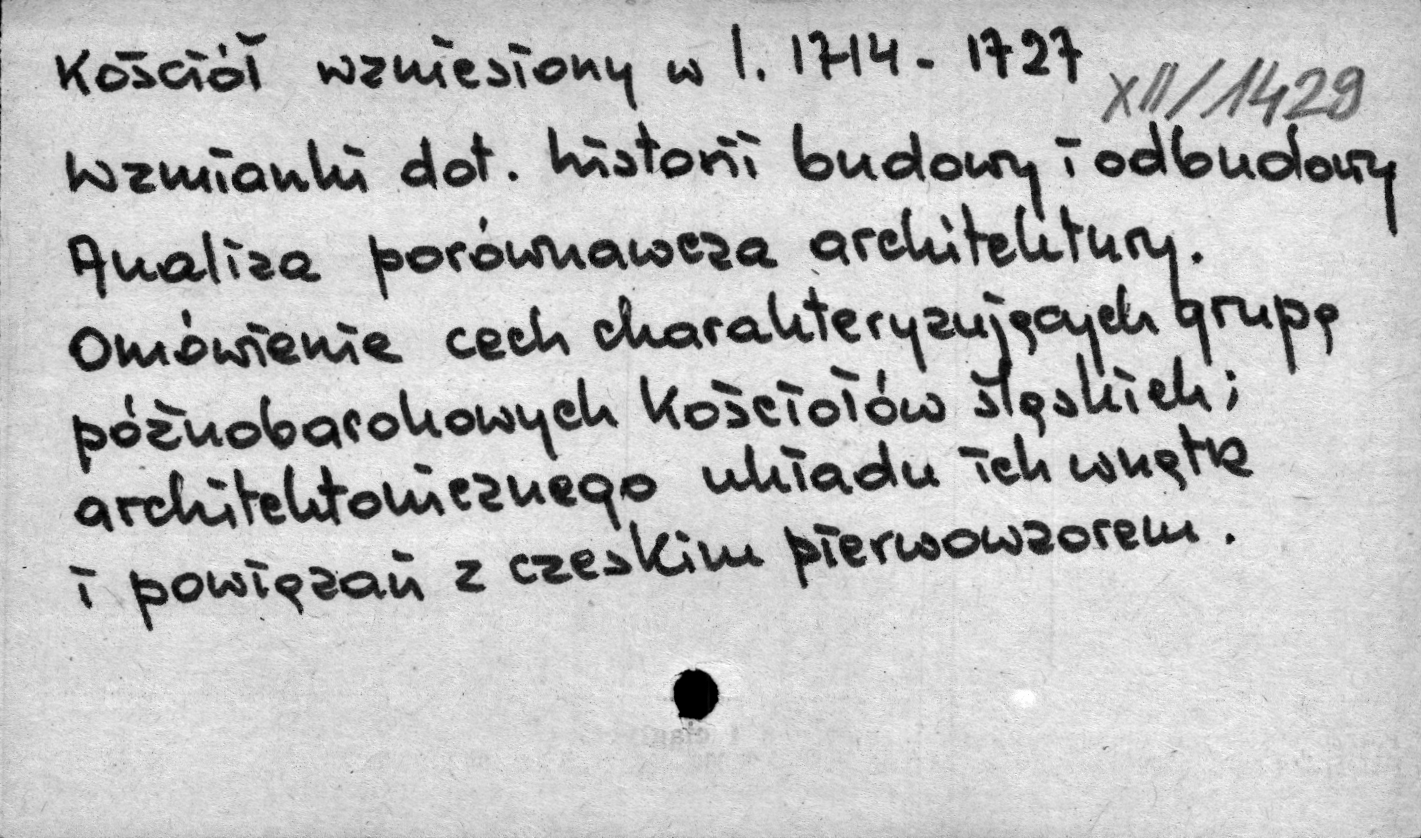 Kościół wzniesiony w l. 1714 - 1727
XII/1429
Wzmianki dot. historii budowy i odbudowy
Analiza porównawcza architektury.
Omówienie cech charakteryzujących grupę
późnobarokowych kościołów śląskich;
architektonicznego układu ich wnętrz
i powiązań z czeskim pierwowzorem.